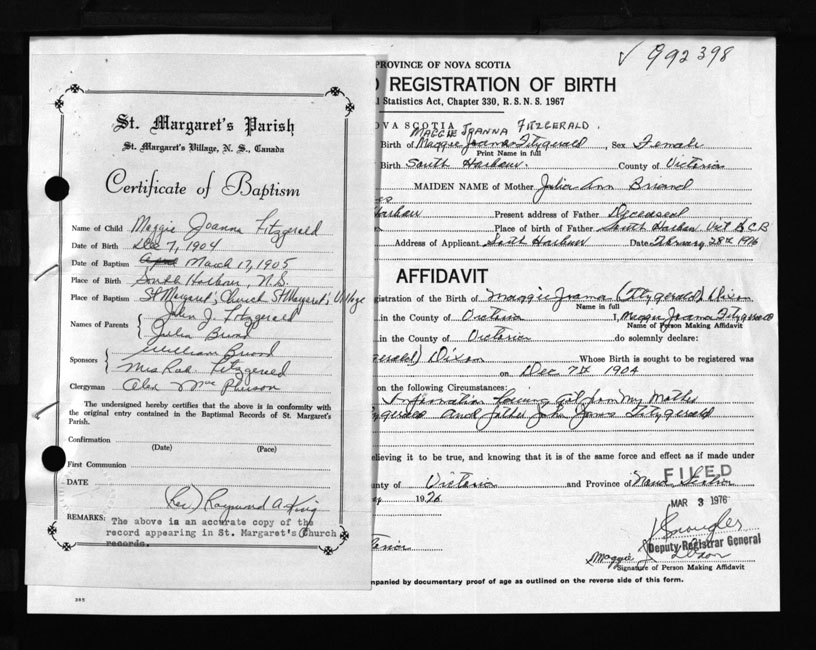 St. Margaret's Parish
St. Margaret's Village, N. S., Canada
Certificate of Baptism
Name of Child Maggie Joanna Fitzgerald
Date of Birth Dec 7, 1904
Date of Baptism April March 17, 1905
Place of Birth South Harbour, N.S.
Place of Baptism St Margaret's Church St Margaret's Village
Names of Parents { John J. Fitzgerald
Julia Briand
Sponsors { William Briand
Mrs Rod. Fitzgerald
Clergyman Alex MacPherson
The undersigned hereby certifies that the above is in conformity with
the original entry contained in the Baptismal Records of St. Margaret's
Parish.
Confirmation
(Date) (Pace)
First Communion
DATE
(Rev) Raymond A. King
REMARKS: The above is an accurate copy of the
record appearing in St. Margaret's Church
records.
385
√ 992398
PROVINCE OF NOVA SCOTIA
REGISTRATION OF BIRTH
Statistics Act, Chapter 330, R. S. N. S. 1967
NOVA SCOTIA
MAGGIE JOANNA FITZGERALD.
Birth of Maggie Joanna Fitzgerald, Sex Female
Print Name in full
Birth South Harbour. County of Victoria
MAIDEN NAME of Mother Julia Ann Briand
Harbour Present address of Father Deceased
Place of birth of Father South Harbour, Vict
Address of Applicant South Harbour Date February 28th 1976
AFFIDAVIT
registration of the Birth of Maggie Joanna (Fitzgerald) Dixon
Name in full
in the County of Victoria I, Maggie Joanna Fitzgerald
Name of Person Making Affidavit
in the County of Victoria do solemnly declare:
Dixon Whose Birth is sought to be registered was
on Dec 7th 1904
on the following Circumstances:
Information from My Mother
Fitzgerald and father John James Fitzgerald
believing it to be true, and knowing that it is of the same force and effect as if made under
County of Victoria and Province of Nova Scotia
FILED
1976
MAR 3 1976
Deputy Registrar General
Maggie J. Dixon
Signature of Person Making Affidavit
accompanied by documentary proof of age as outlined on the reverse side of this form.